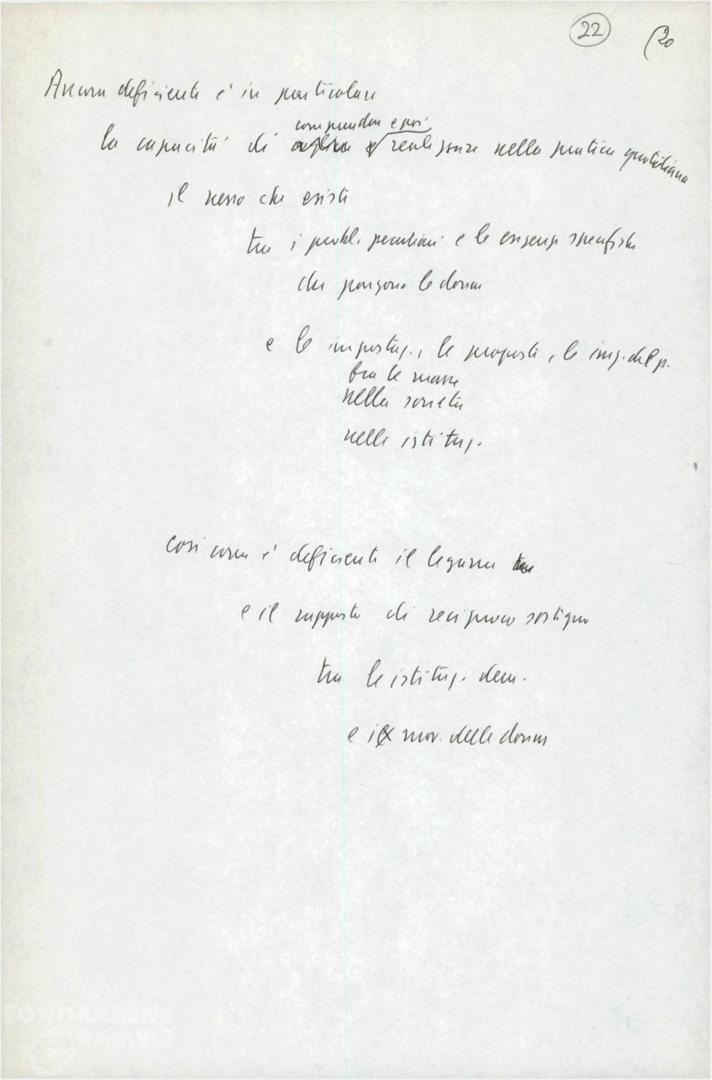 22 (20
Ancora deficiente è in particolare
comprendere e poi
la capacità di realizzare nella pratica quotidiana
il nesso che esiste
tra i probl. peculiari e le esigenze specifiche
che pongono le donne
e le impostaz., le proposte, le iniz. del p.
tra le masse
nella società
nelle istituz.
così come è deficiente il legame
e il rapporto di reciproco sostegno
tra le istituz. dem.
e il mov. delle donne
FONDAZIONE
GRAMSCI